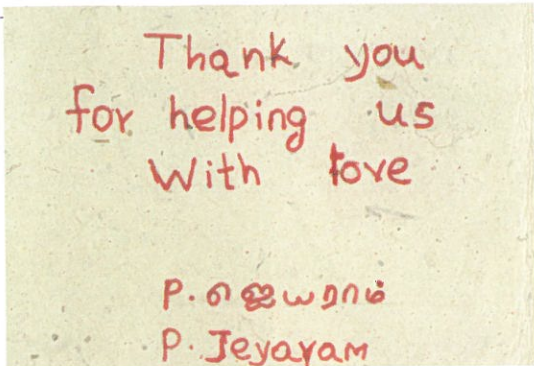 Thank you
for helping us
With love
P. ஜெயராம்
P. Jeyaram